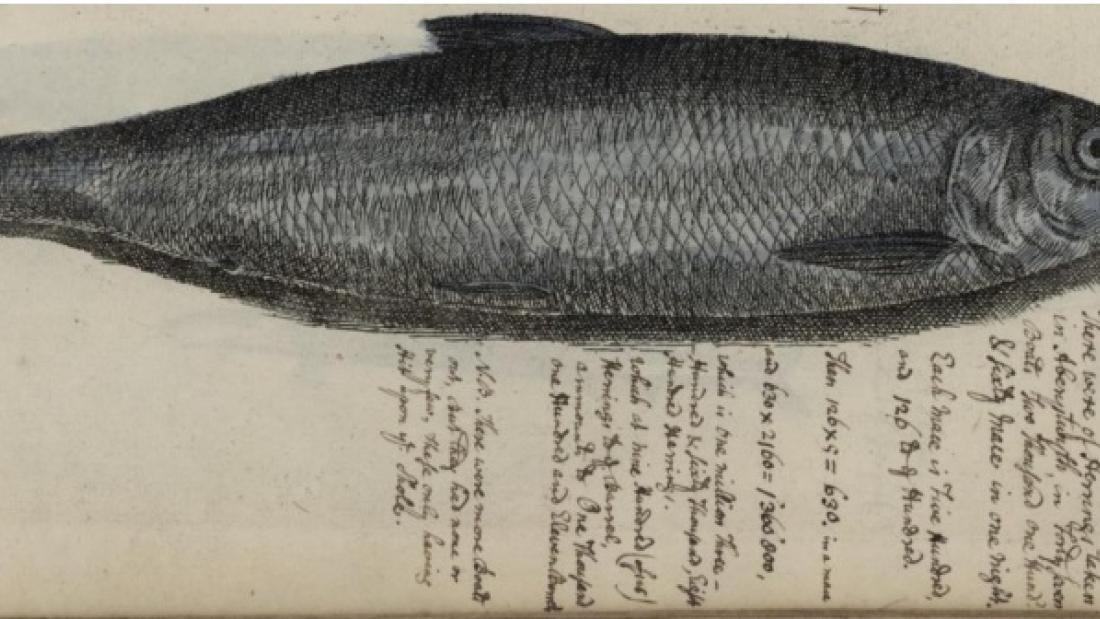 There were of Herrings taken
in Aberystwyth, in Forty seven
Boats Two Thousand one Hund.d
& sixty Meace in one night.
Each Meace is Five Hundred,
and 126 to ye Hundred.
Then 126 x 5 = 630. in a meace
and 630 x 2160 = 1360'800,
which is One million Three-
Hundred & sixty Thousand, Eight
Hundred Herrings,
Which at nine Hundred
Herrings to ye Barrel,
amount to One Thousand
one Hundred and Eleven
N.B. There were more Boats
out, but they had none or
very few, these only having
Hit upon ye Shole.